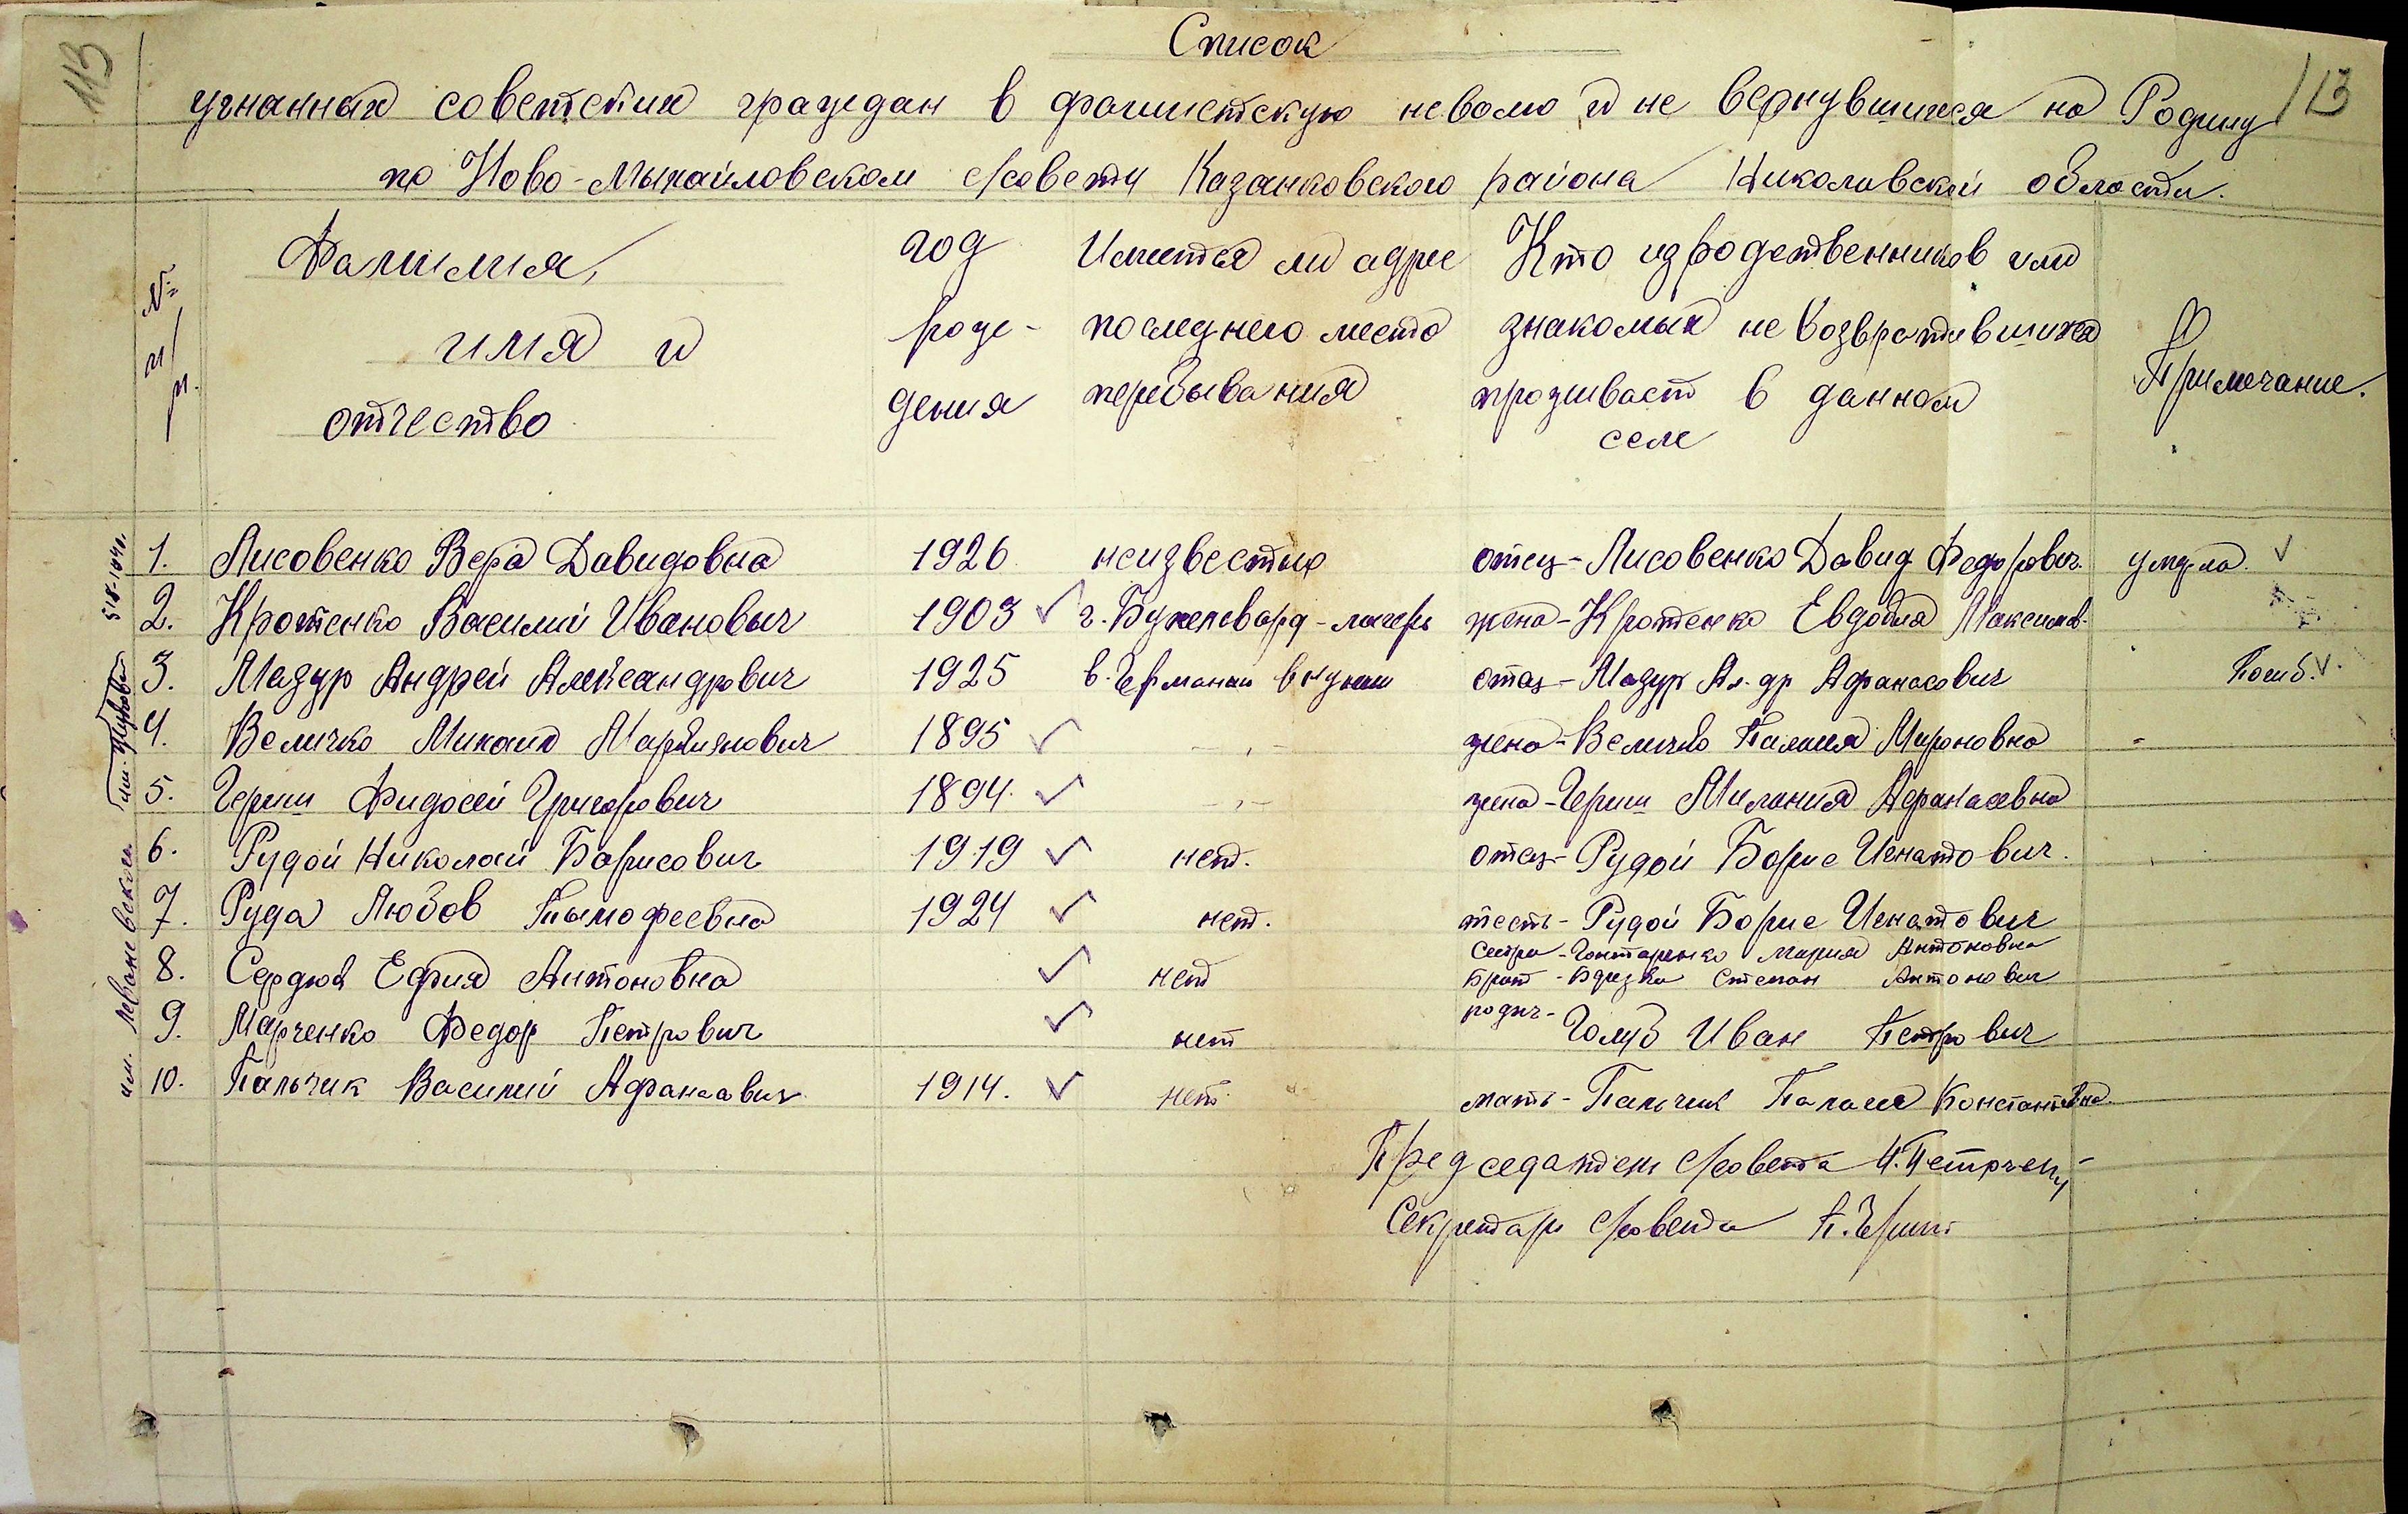 113
Список
113
угнанных советских граждан в фашистскую неволю и не вернувшихся на Родину
по Ново-Михайловском с/совету Казанковского района Николаевской области.
№ п/п. Фамилия, имя и отчество год рождения Имеется ли адрес последнего место перебывания Кто из родственников или знакомых не возвратившихся проживает в данном селе Примечание.
1. Лисовенко Вера Давидовна 1926 неизвестно отец-Лисовенко Давид Федорович. умерла. ✓
2. Кротенко Василий Иванович 1903 ✓ г. Бухенвард-лагерь жена-Кротенко Евдокия Максимов.
3. Мазур Андрей Александрович 1925 в. Германии отец-Мазур Ал-др Афанасович Погиб. ✓
4. Величко Михаил 1895 ✓ -"- жена-Величко Мироновна
5. Чериш Фидосей Григорович 1894. ✓ -"- жена-Чериш Милания Афанасевна
6. Рудой Николай Борисович 1919 ✓ нет. отец-Рудой Борис Игнатович.
7. Руда Любов Тымофеевна 1924 ✓ нет. тесть-Рудой Борис Игнатович
8. Сердюк Ефия Антоновна ✓ нет сестра-Гонтаренко Мария Антоновна
Брат - Степан Антонович
9. Марченко Федор Петрович ✓ нет родич-Голуб Иван Петрович
10. Пальчик Василий Афанасавич 1914. ✓ нет. мать-Пальчик Палагея
Председатель с/совета
Секретарь с/совета